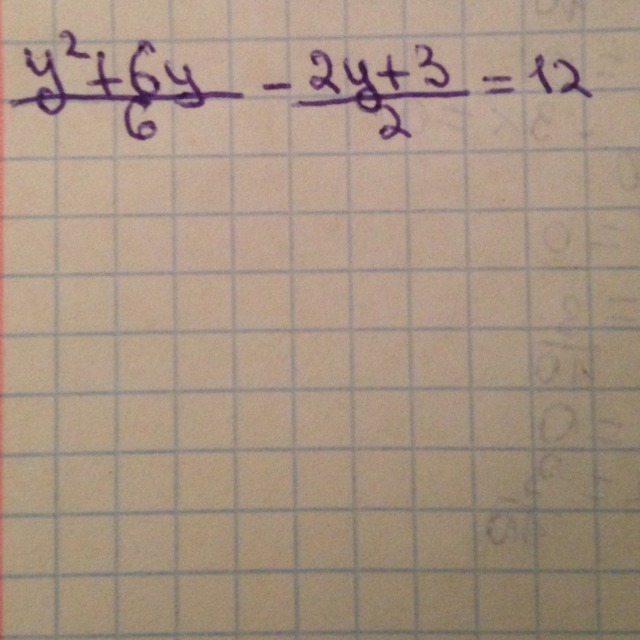 \frac{y^2+6y}{6} - \frac{2y+3}{2} = 12